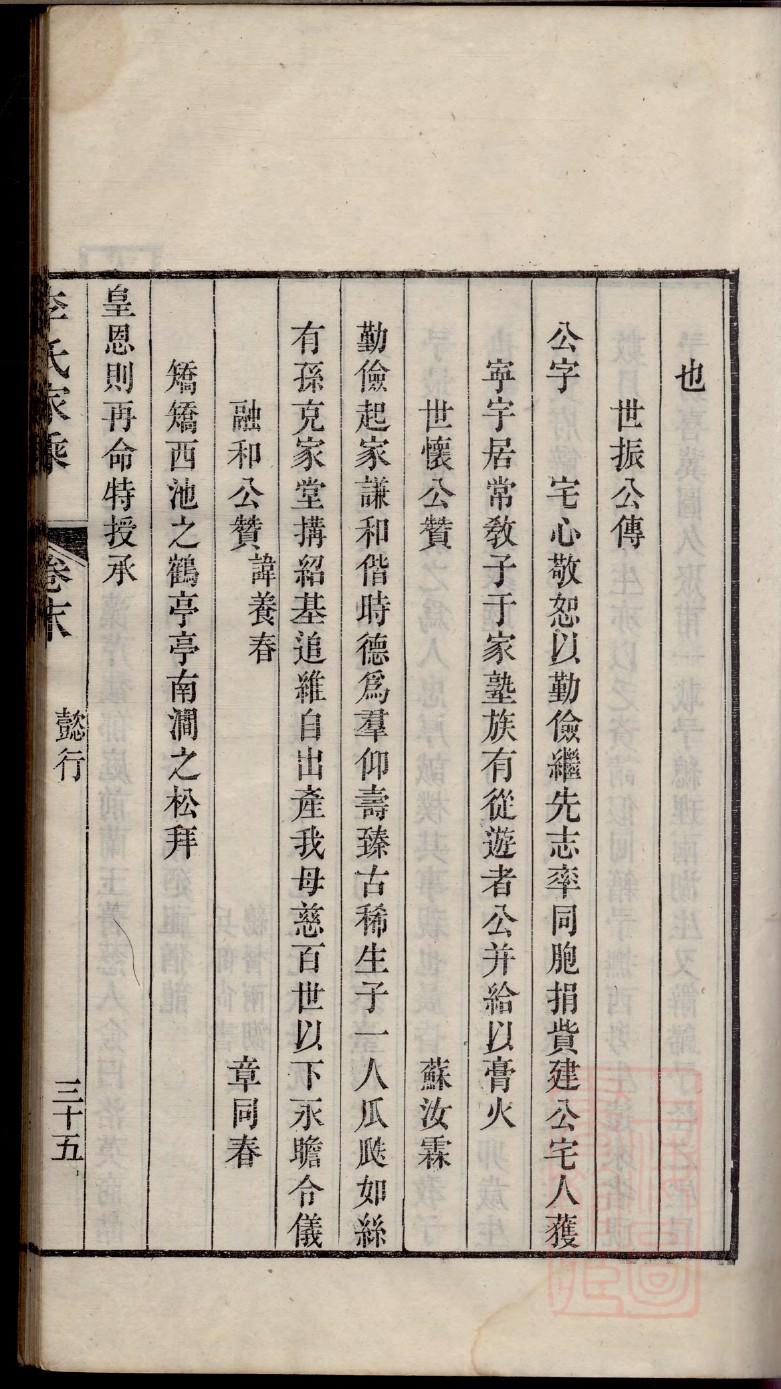 也
世振公傳
公字　宅心敬恕以勤儉繼先志率同胞捐貲建公宅人獲
寧宇居常敎子于家塾族有從遊者公并給以膏火
世懷公贊　蘇汝霖
勤儉起家謙和偕時德爲羣仰壽臻古稀生子一人瓜瓞如絲
有孫克家堂搆紹基追維自出產我母慈百世以下永瞻令儀
融和公贊諱養春　章同春
矯矯西池之鶴亭亭南澗之松拜
皇恩則再命特授承
李氏家乘　卷末　懿行　三十五